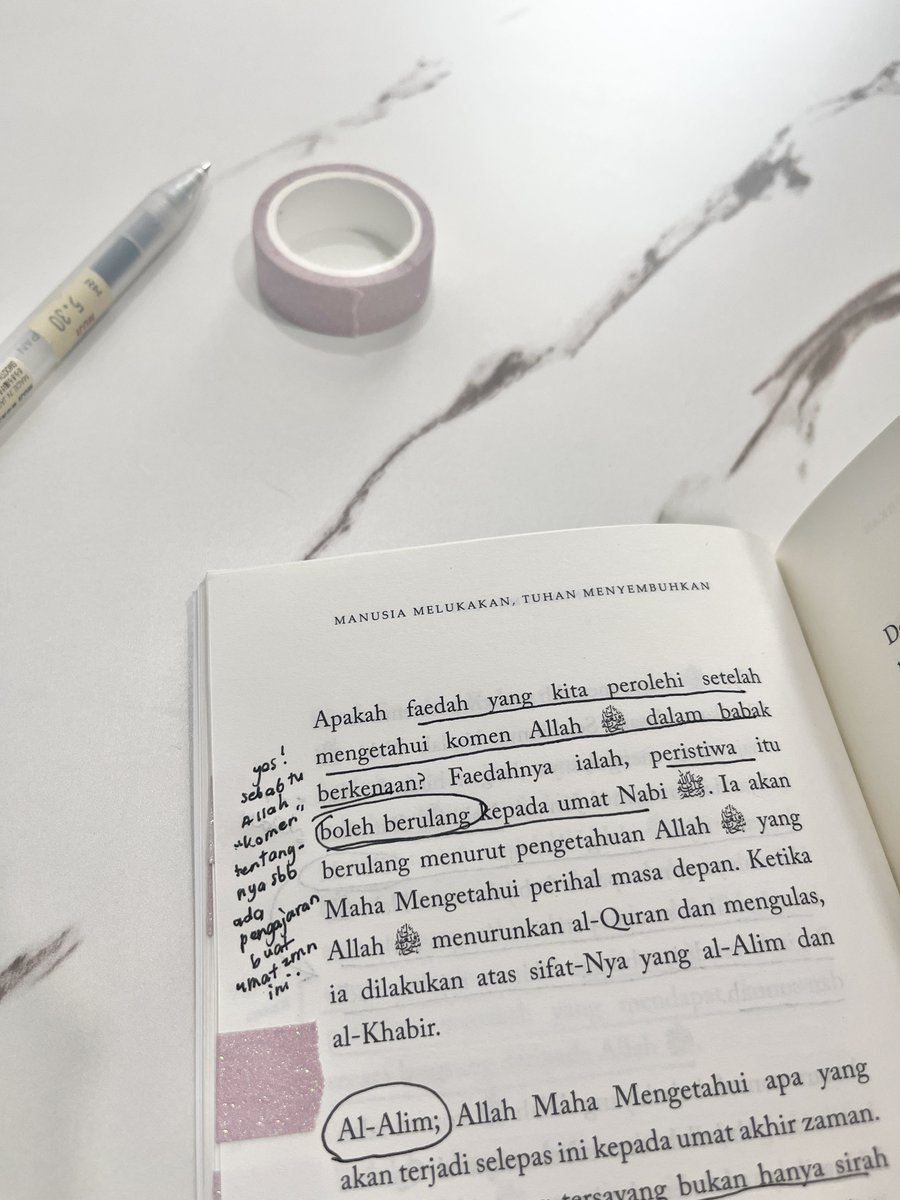 5.30
MUJI
MANUSIA MELUKAKAN, TUHAN MENYEMBUHKAN
Apakah faedah yang kita perolehi setelah
mengetahui komen Allah ﷻ dalam babak
berkenaan? Faedahnya ialah, peristiwa itu
boleh berulang kepada umat Nabi ﷺ. Ia akan
berulang menurut pengetahuan Allah ﷻ yang
Maha Mengetahui perihal masa depan. Ketika
Allah ﷻ menurunkan al-Quran dan mengulas,
ia dilakukan atas sifat-Nya yang al-Alim dan
al-Khabir.
Al-Alim; Allah Maha Mengetahui apa yang
akan terjadi selepas ini kepada umat akhir zaman.
tersayang bukan hanya sirah
yas!
sebab tu
Allah
"komen"
tentang-
nya sbb
ada
pengajaran
buat
umat zmn
ini..